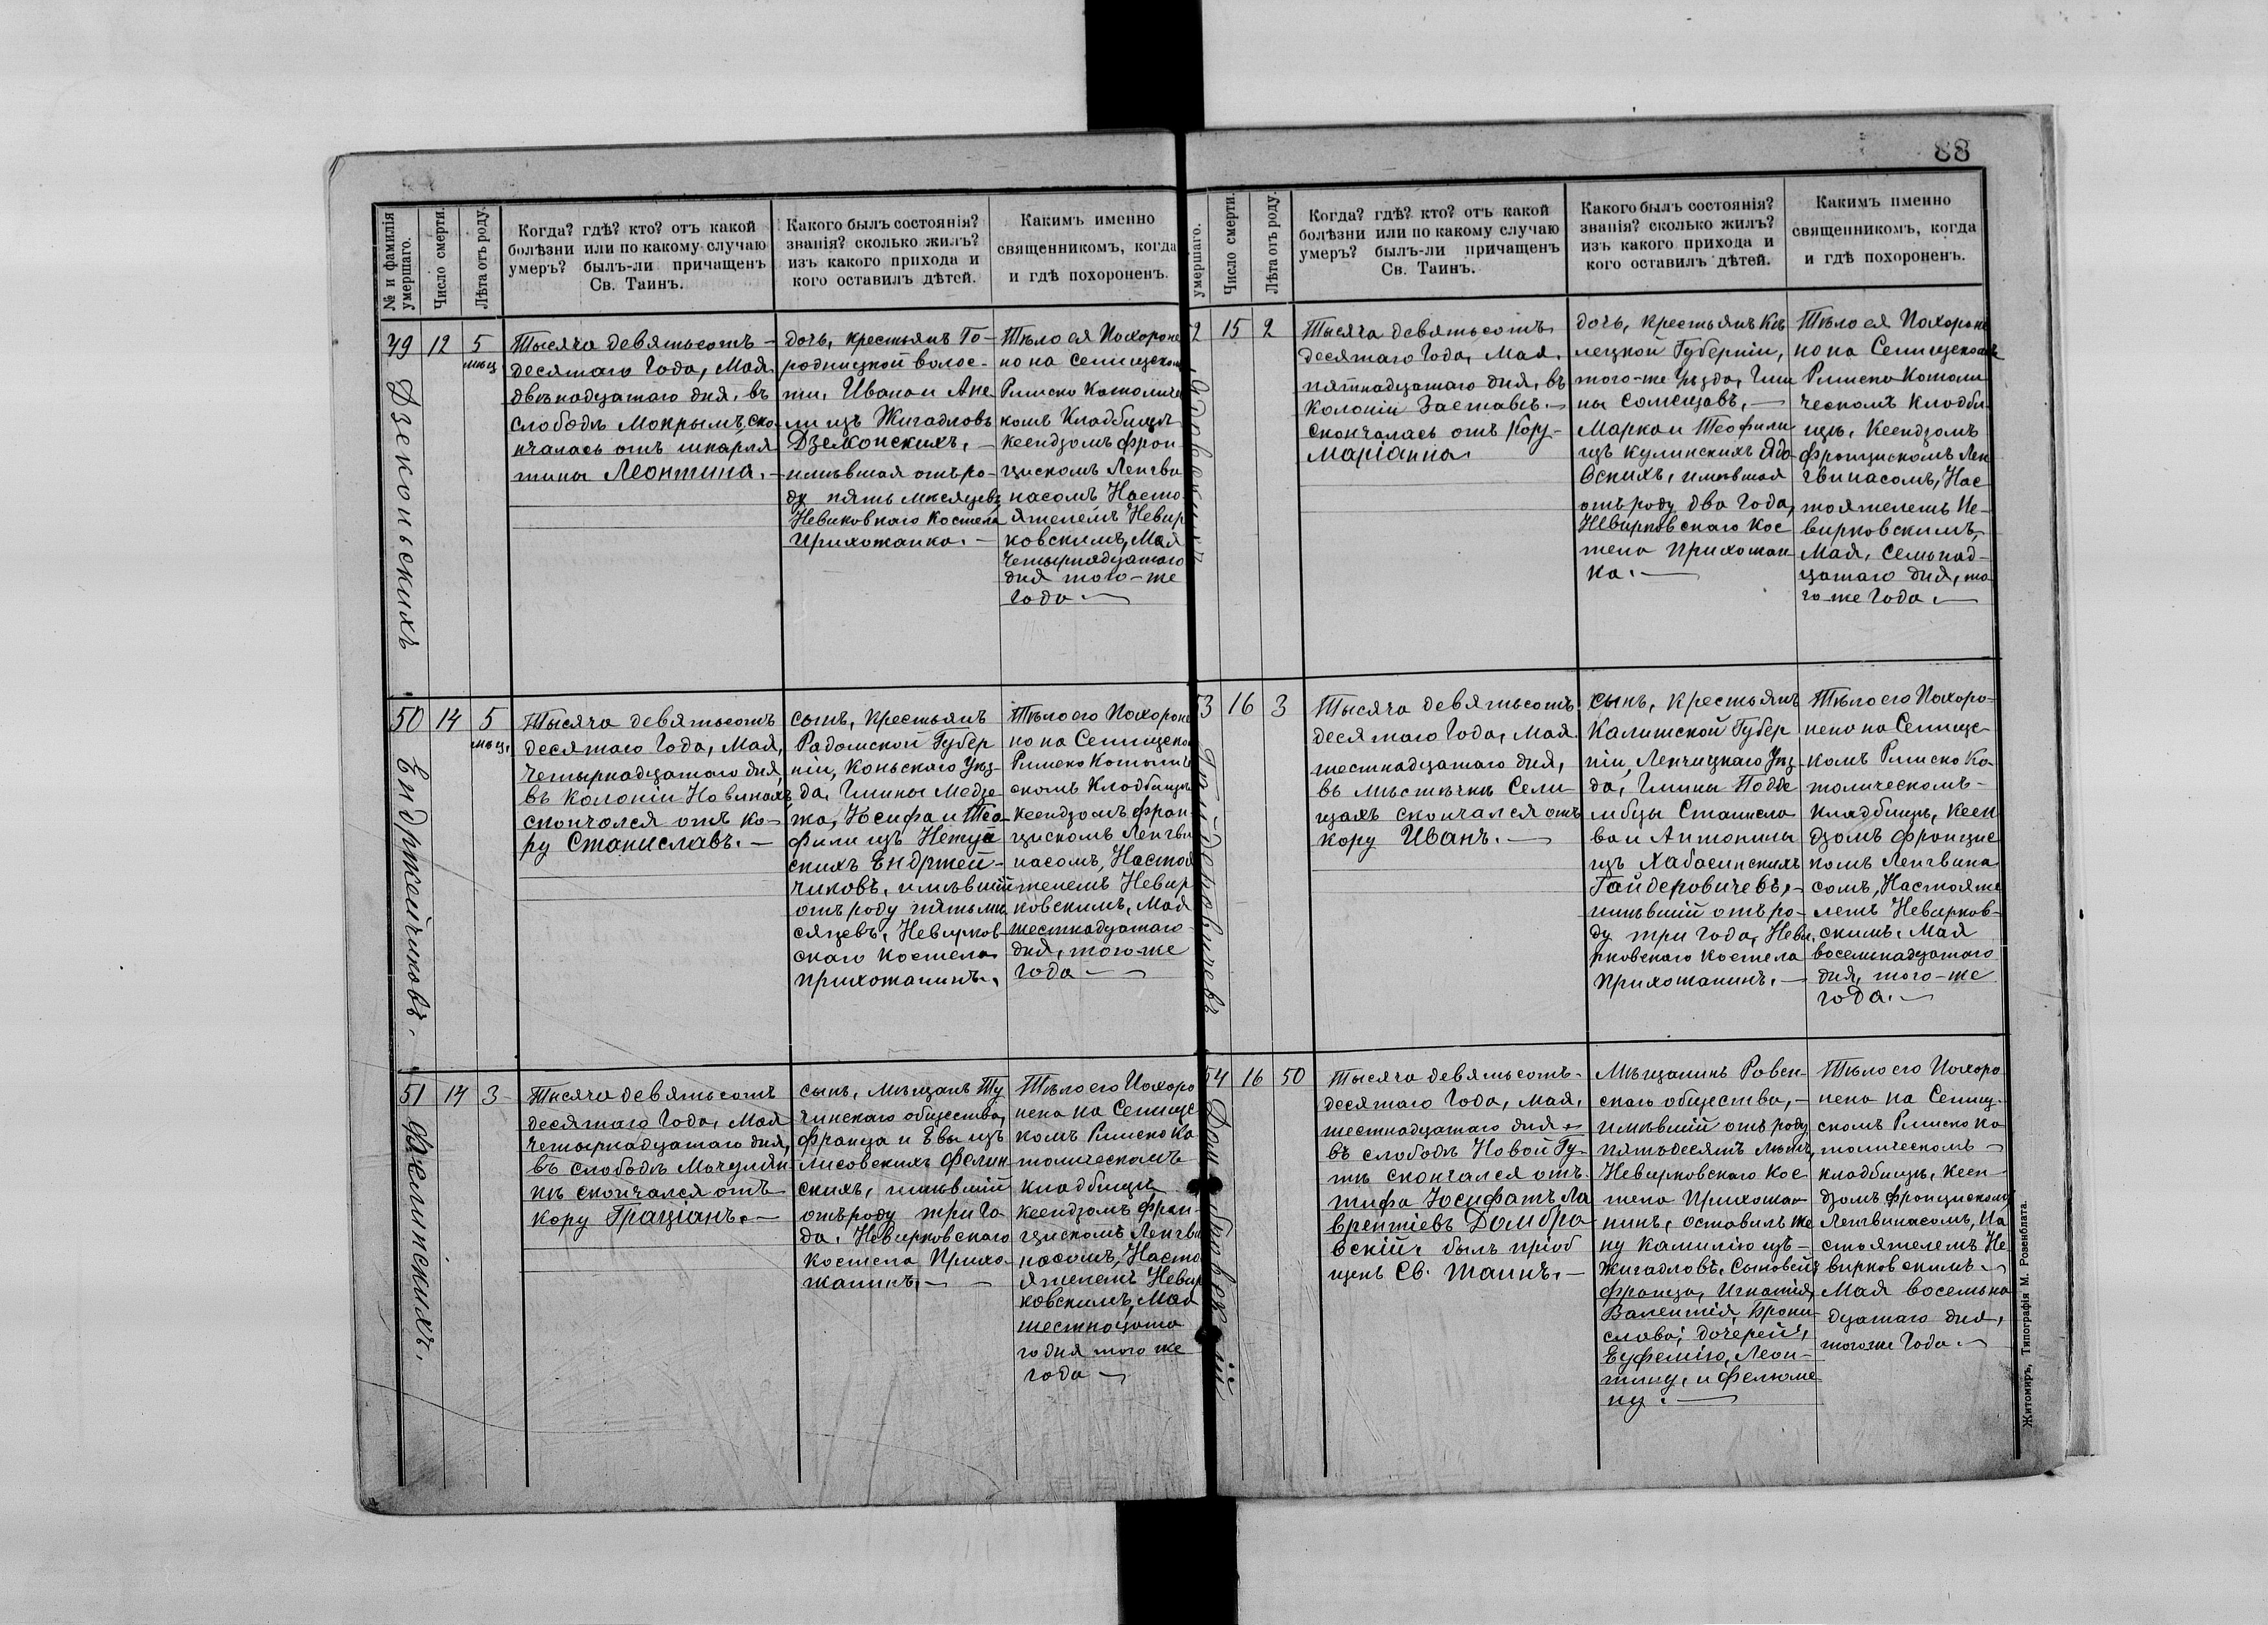 88
№ и фамилія умершаго.
Число смерти.
Лѣта отъ роду.
Когда? гдѣ? кто? отъ какой
болѣзни или по какому случаю
умеръ? былъ-ли причащенъ
Св. Таинъ.
Какого былъ состоянія?
званія? сколько жилъ?
изъ какого прихода и
кого оставилъ дѣтей.
Какимъ именно
священникомъ, когда
и гдѣ похороненъ.
49
Дзеконьскихъ
12
5
мѣц.
Тысяча девятьсотъ
десятаго Года, Мая
двѣнадцатаго дня, въ
слободѣ Мокрымъ, ско-
нчалась отъ шкарля
тины Леонтина. —
дочь, крестьянъ Го-
родницкой волос-
ти, Ивана и Ане
ли изъ Жигадловъ
Дзеконскихъ, —
имѣвшая отъ ро-
ду пять мѣсяцевъ
Невиковнаго Костела
Прихожанка. —
Тѣло ея Похороне
но на Селищском
Римско Католиче
комъ Кладбищѣ
Ксендзомъ Фран
цискомъ Ленгви
насомъ, Насто
ятелемъ Невир
ковскимъ, Мая
Четырнадцатаго
дня того-же
Года —
50
Ендржейчиковъ.
14
5
мѣц.
Тысяча девятьсотъ
десятаго Года, Мая,
Четырнадцатаго дня,
въ колоніи Новинахъ
скончался отъ ко-
ру Станиславъ. —
сынъ, Крестьянъ
Радомской Губер
ніи, Коньскаго Уѣз-
да, Гмины Медзе
жа, Іосифа и Тео-
фили изъ
скихъ Ендржей-
чиковъ, имѣвшій
отъ роду пять мѣ
сяцевъ, Невирков-
скаго Костела
Прихожанинъ.
Тѣло его Похороне
но на Селищском
Римско Католич
скомъ Кладбищѣ
Ксендзомъ Фран
цискомъ Ленгви
насомъ, Настоя
телемъ Невир
ковскимъ, Мая
шестнадцатаго
дня, того-же
Года —
51
Фелинскихъ.
14
3
Тысяча девятьсотъ
десятаго Года, Мая
Четырнадцатаго дня,
въ слободѣ Мочулян
кѣ скончался отъ
кору Граціанъ. —
сынъ, мѣщанъ Ту
чинскаго общества,
Франца и Евы изъ
Лисовскихъ Фелин
скихъ, имѣвшій
отъ роду три Го
да, Невирковскаго
Костела Прихо-
жанинъ, —
Тѣло его Похоро
нено на Селищс
комъ Римско Ка
толическомъ
кладбищѣ
Ксендзомъ Фран-
цискомъ Ленгви
насомъ, Насто
ятелемъ Невир
ковскимъ, Мая
шестнацата
го дня того же
года —
умершаго.
Число смерти.
Лѣта отъ роду.
Когда? гдѣ? кто? отъ какой
болѣзни или по какому случаю
умеръ? былъ-ли причащенъ
Св. Таинъ.
Какого былъ состоянія?
званія? сколько жилъ?
изъ какого прихода и
кого оставилъ дѣтей.
Какимъ именно
священникомъ, когда
и гдѣ похороненъ.
2
Ядовскихъ
15
2
Тысяча девятьсотъ
десятаго Года, Мая.
пятнадцатаго дня, въ
Колоніи Заставъ. —
скончалась отъ Кору-
Маріанна
дочь, крестьянъ Кѣ
лецкой Губерніи,
того-же Уѣзда, Гми
ны Сомецавъ, —
Марка и Теофили
изъ Кулинскихъ Ядо-
вскихъ, имѣвшая
отъ роду два Года,
Невирковскаго Кос
тела Прихожан
ка. —
Тѣло ея Похороне
но на Селищскомъ
Римско Католи
ческомъ Кладби
щѣ, Ксендзомъ
Францискомъ Лен
гвинасомъ, Нас
тоятелемъ Не-
вирковскимъ,
Мая, Семьнад-
цатаго дня, то
го-же Года. —
53
Гайдеровичевъ
16
3
Тысяча девятьсотъ
десятаго Года, Мая
шестнадцатаго дня,
въ мѣстечкѣ Сели
щахъ скончался отъ
кору Иванъ. —
Сынъ, Крестьянъ
Калишской Губер
ніи, Ленчицкаго Уѣз-
да, Гмины Поддѣ
мбцы Станисла
ва и Антонины
изъ Хабасинскихъ
Гайдеровичевъ, —
имѣвшій отъ ро-
ду три Года, Неви
рковскаго Костела
Прихожанинъ. —
Тѣло его Похоро-
нено на Селищс-
комъ Римско Ка-
толическомъ-
Кладбищѣ, Ксен
дзомъ Францис
комъ Ленгвина
сомъ, Настояте
лемъ Невирков-
скимъ, Мая
восемнадцатаго
дня, того-же
Года. —
54
Домбровскій
16
50
Тысяча девятьсотъ-
десятаго Года, Мая,
шестнадцатаго дня
въ слободѣ Новой Гу-
тѣ скончался отъ
тифа Іосифатъ Ла
врентіевъ Домбро
вскій, былъ пріоб
щенъ Св. Таинъ. —
Мѣщанинъ Ровен-
скаго общества, —
имѣвшій отъ роду
пятьдесятъ лѣтъ,
Невирковскаго Кос
тела Прихожа-
нинъ, оставилъ же
ну Камилію изъ-
Жигадловъ, Сыновей
Франца, Игнатія,
Валентія, Брони-
слава; дочерей,
Еуфемію, Леон-
тину, и Фелюме
ну. —
Тѣло его Похоро
нено на Селищ-
скомъ Римско Ка
толическомъ —
кладбищѣ, Ксен-
дзомъ Францискомъ
Ленгвинасомъ, На
стоятелемъ Не-
вирковскимъ —
Мая восемьна
дцатаго дня,
того же Года. —
Житомиръ, Типографія М. Розенблата.